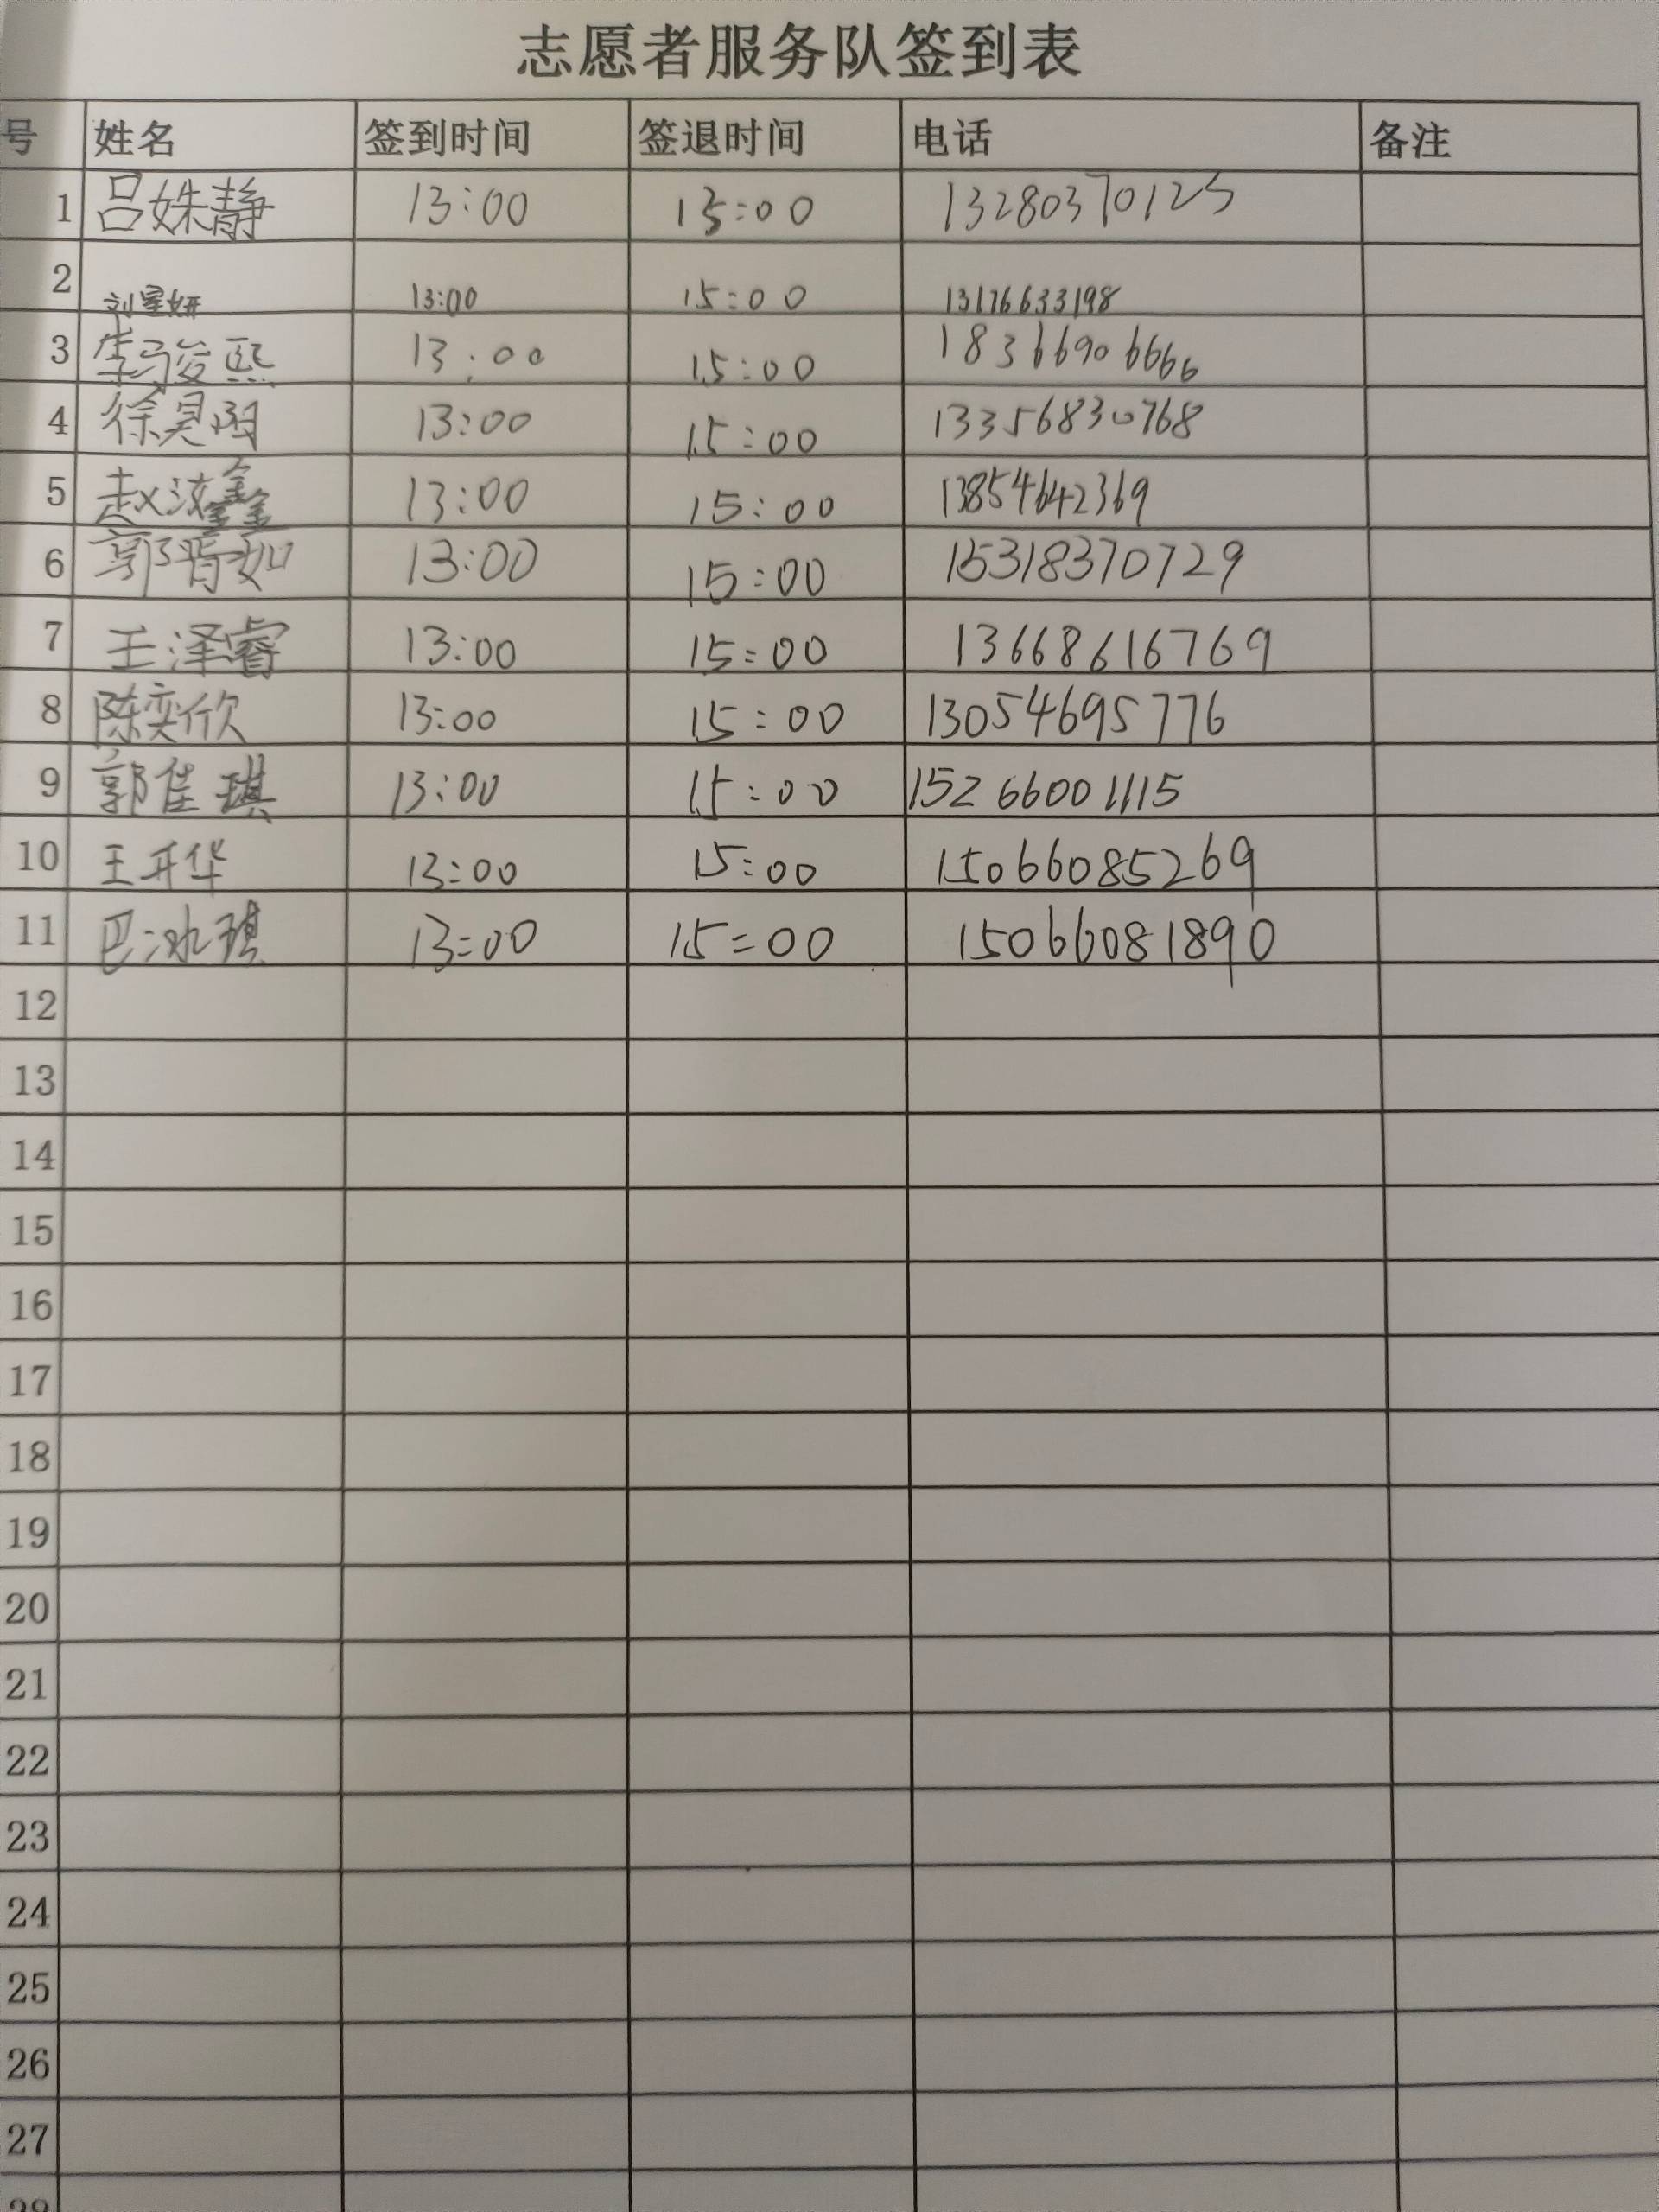 志愿者服务队签到表
号 姓名 签到时间 签退时间 电话 备注
1 吕姝静 13:00 15:00 13280370125
2 刘星妍 13:00 15:00 13176633198
3 李骏熙 13:00 15:00 18366906666
4 徐昊 13:00 15:00 13356830768
5 赵鑫 13:00 15:00 13854642369
6 郭胥如 13:00 15:00 15318370729
7 王泽睿 13:00 15:00 13668616769
8 陈奕欣 13:00 15:00 13054695776
9 郭佳琪 13:00 15:00 15266001115
10 王开华 13:00 15:00 15066085269
11 巴冰琪 13:00 15:00 15066081890
12
13
14
15
16
17
18
19
20
21
22
23
24
25
26
27